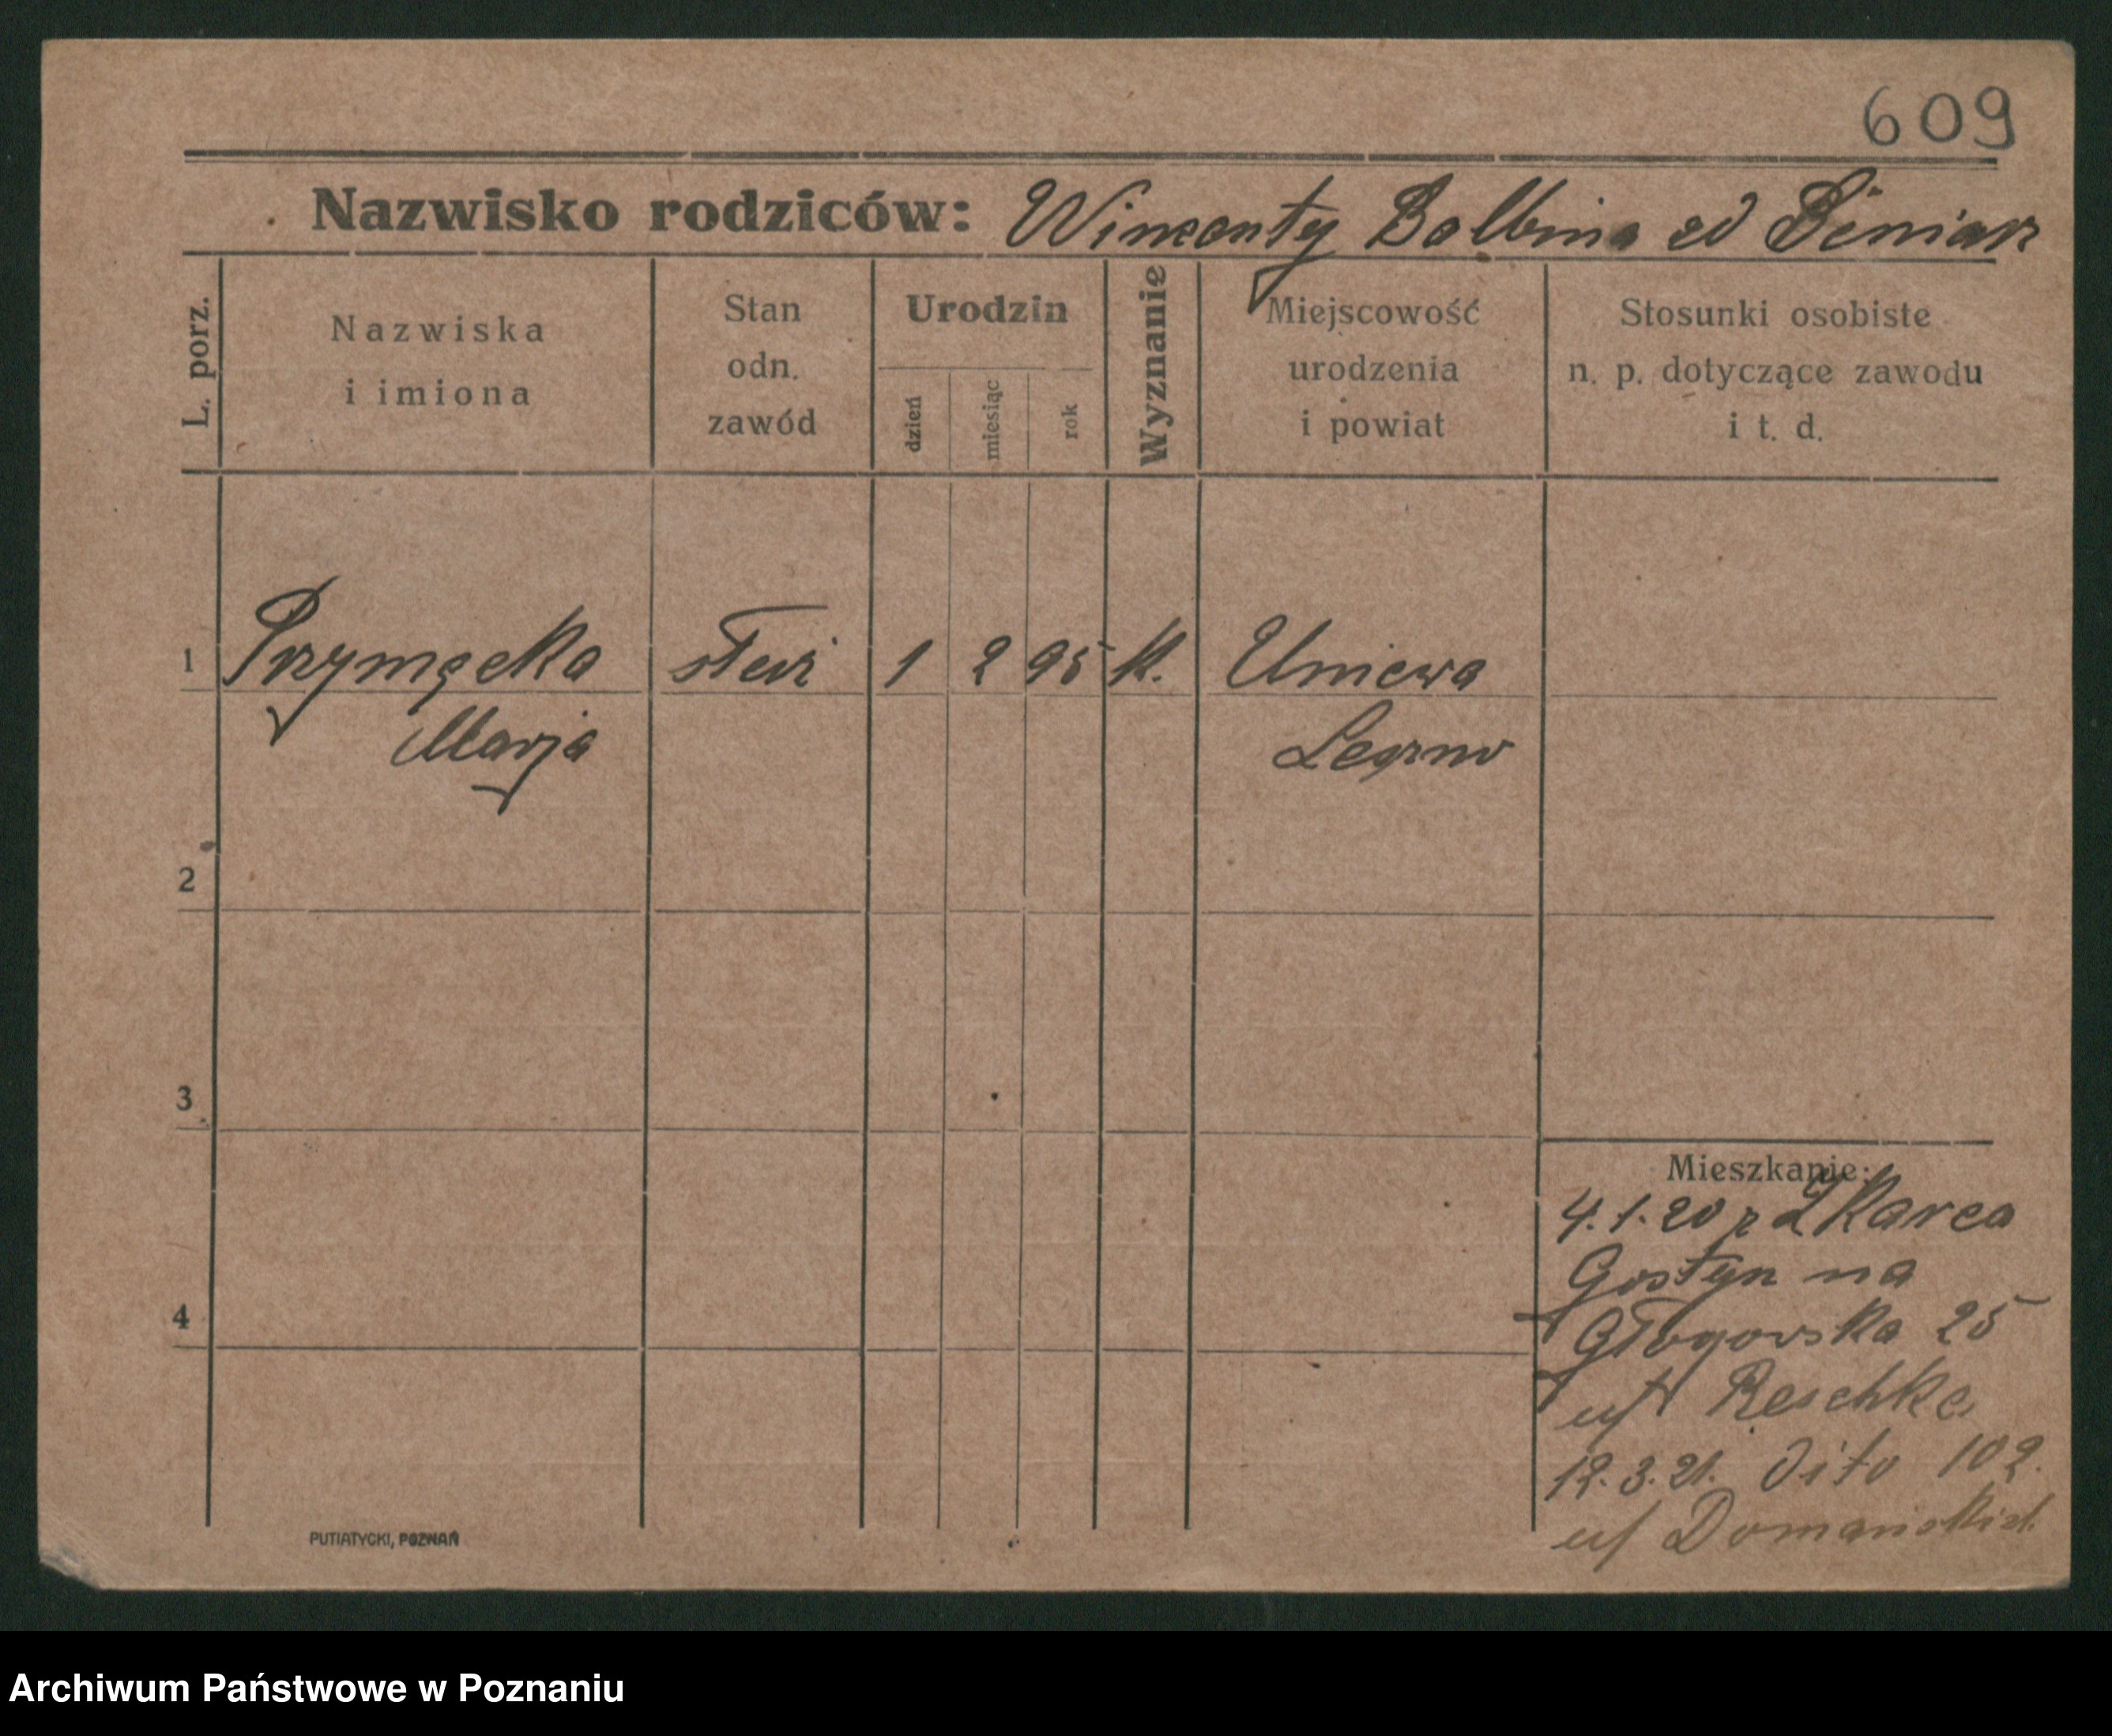 609
Nazwisko rodziców: Wincenty Balbina zd
L. porz.
Nazwiska i imiona
Stan odn. zawód
Urodzin
dzień
miesiąc
rok
Wyznanie
Miejscowość urodzenia i powiat
Stosunki osobiste n. p. dotyczące zawodu i t. d.
1 Przymęcka 1 2 95 K.
Marja
2
3
4
Mieszkanie:
4.1.20 z Karca
Gostyn na
Głogowska 25
Reschke
12.3.21. dito 102.
PUTIATYCKI, POZNAŃ
Archiwum Państwowe w Poznaniu